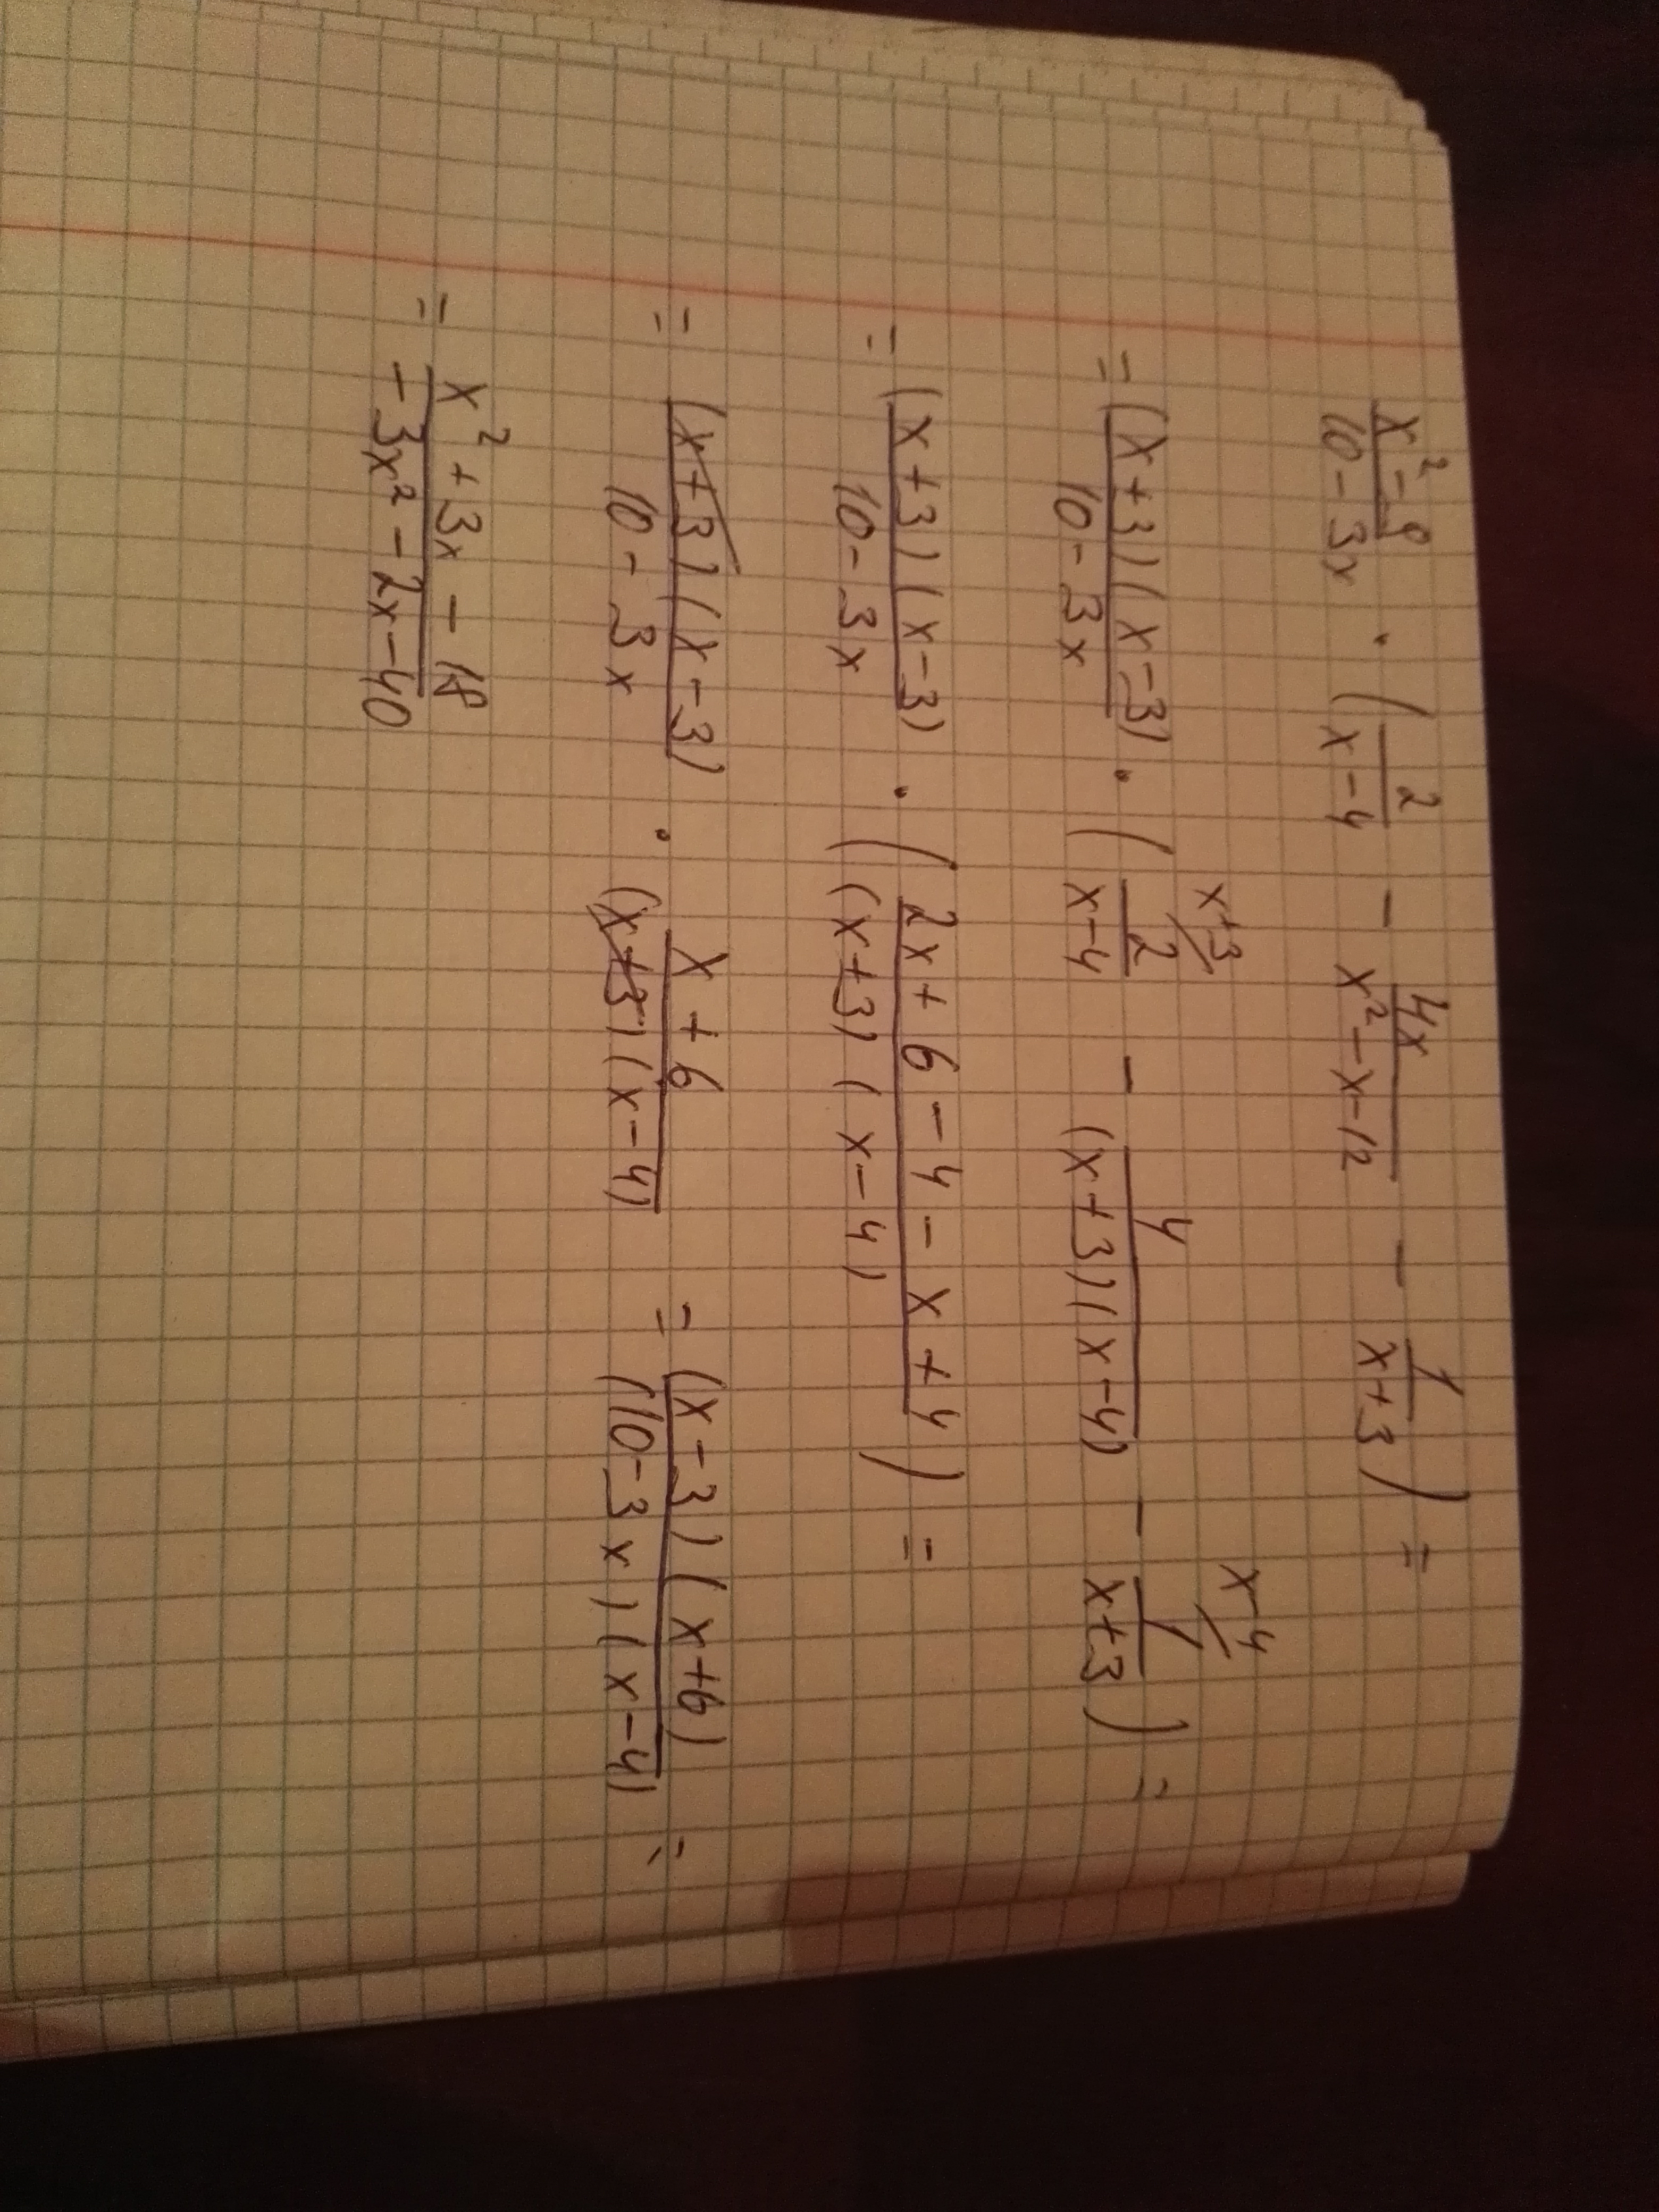 x² - 9 / 10 - 3x · ( 2 / x - 4 - 4x / x² - x - 12 - 1 / x + 3 ) =
= (x + 3) (x - 3) / 10 - 3x · ( x+3/ 2 / x - 4 - 4 / (x + 3) (x - 4) - x-4/ 1 / x + 3 ) =
= (x + 3) (x - 3) / 10 - 3x · ( 2x + 6 - 4 - x + 4 / (x + 3) (x - 4) ) =
= (x + 3) (x - 3) / 10 - 3x · x + 6 / (x + 3) (x - 4) = (x - 3) (x + 6) / (10 - 3x) (x - 4) =
= x² + 3x - 18 / - 3x² - 2x - 40